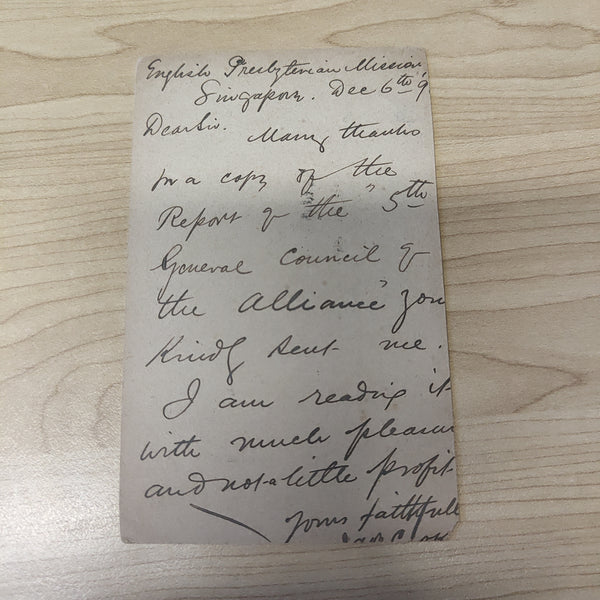 English Presbyterian Mission
Singapore. Dec 6th '9
Dear Sir. Many thanks
for a copy of the
Report of the "5th
General Council of
the Alliance" you
Kindly sent me.
I am reading it
with much pleasure
and not a little profit
Yours faithfull